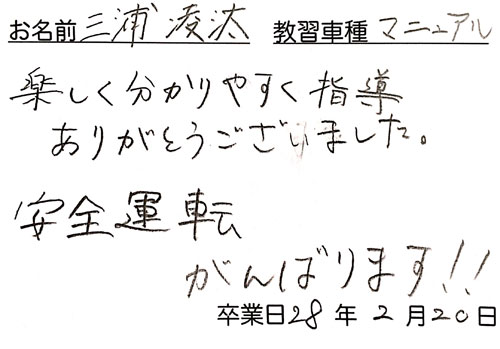 お名前 三浦 凌汰 教習車種 マニュアル
楽しく分かりやすく指導
ありがとうございました。
安全運転
がんばります!!
卒業日28年2月20日